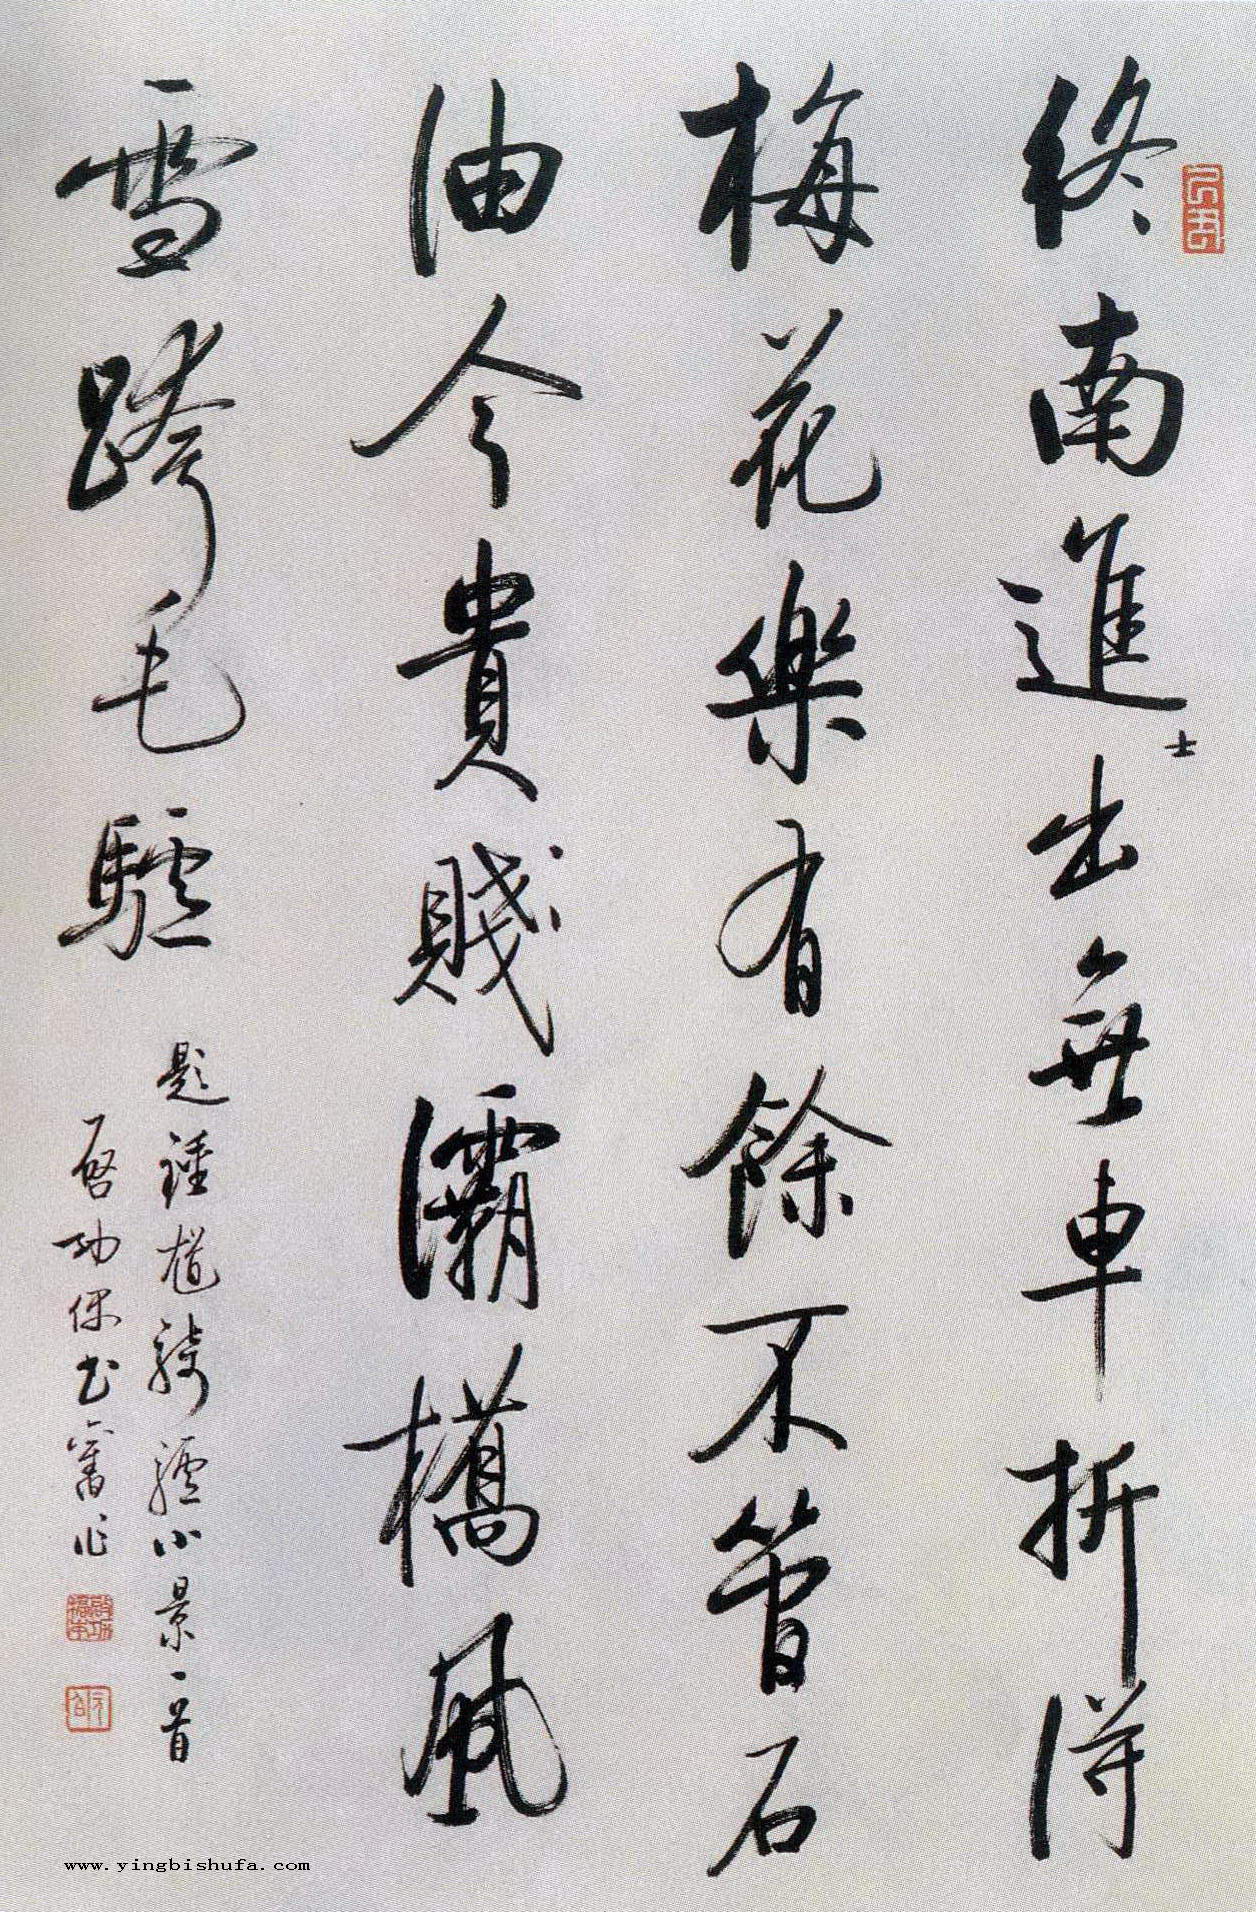 終南進士出無車折得
梅花樂有餘不管石
油今貴賤灞橋風
雪跨毛驢
題鍾馗騎驢小景一首
啓功偶書舊作
www.yingbishufa.com